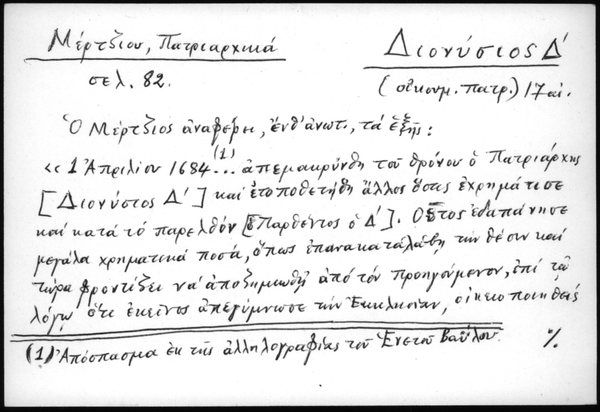 Μέρτζιου, Πατριαρχικά
σελ. 82.
Διονύσιος Δ΄
(οἰκουμ. πατρ.) 17 αἰ.
Ὁ Μέρτζιος ἀναφέρει, ἔνθ' ἀνωτ., τά ἑξῆς:
«1 Ἀπριλίου 1684...(1) ἀπεμακρύνθη τοῦ θρόνου ὁ Πατριάρχης
[Διονύσιος Δ΄] καί ἐτοποθετήθη ἄλλος ὅστις ἐχρημάτισε
καί κατά τό παρελθόν [ὁ Παρθένιος ὁ Δ΄]. Οὗτος ἐδαπάνησε
μεγάλα χρηματικά ποσά, ὅπως ἐπανακαταλάβῃ τήν θέσιν καί
τώρα φροντίζει νά ἀποζημιωθῇ ἀπό τόν προηγούμενον, ἐπί τῷ
λόγῳ ὅτι ἐκεῖνος ἀπεγύμνωσε τήν Ἐκκλησίαν, οἰκειοποιηθείς
(1) Ἀπόσπασμα ἐκ τῆς ἀλληλογραφίας τοῦ Ἑνετοῦ Βαΐλου. %